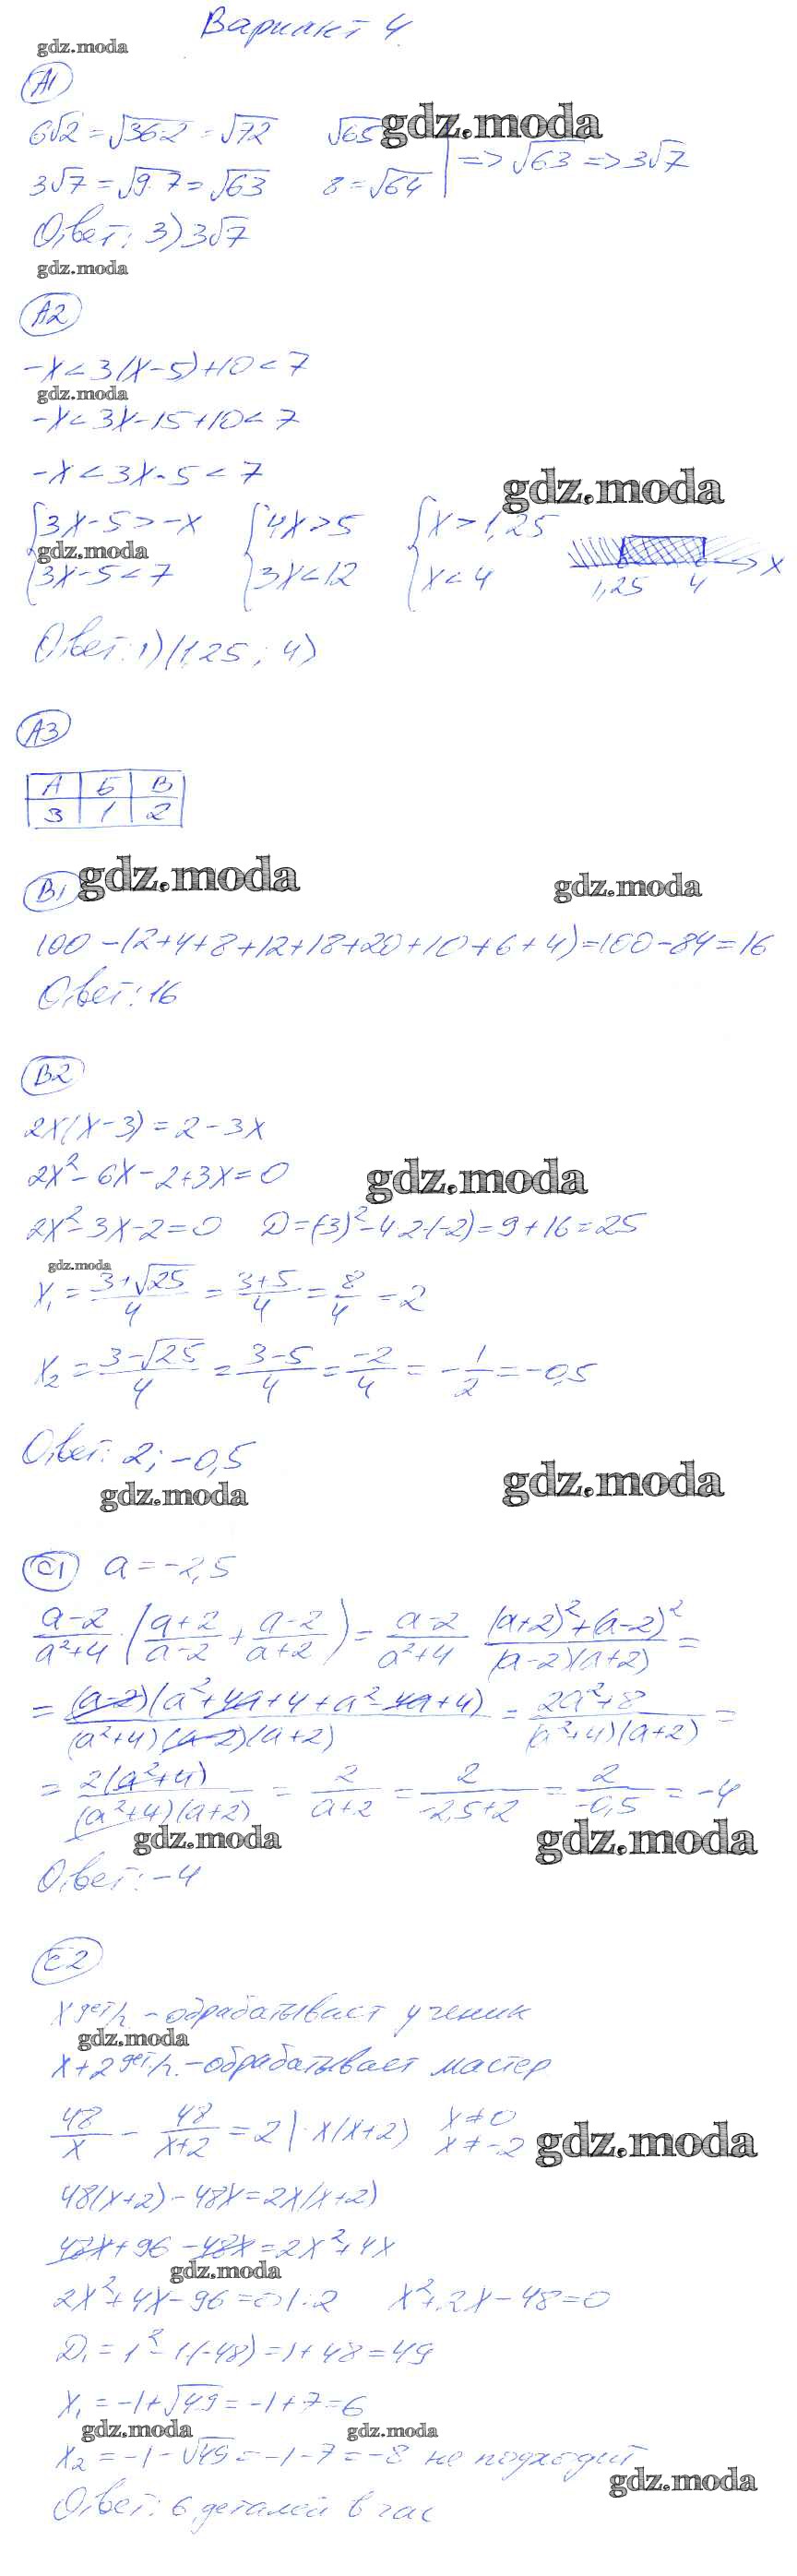 Вариант 4.
gdz.moda
А1
6√2 = √36·2 = √72 √65
gdz.moda
3√7 = √9·7 = √63 8 = √64 => √63 => 3√7
Ответ: 3) 3√7
gdz.moda
А2
-x < 3(x-5)+10 < 7
gdz.moda
-x < 3x-15+10 < 7
-x < 3x-5 < 7
gdz.moda
{3x-5 > -x {4x > 5 {x > 1,25
gdz.moda
{3x-5 < 7 {3x < 12 {x < 4
1,25 4 x
Ответ: 1) (1,25; 4)
А3
А Б В
3 1 2
В1
gdz.moda
gdz.moda
100-(2+4+8+12+18+20+10+6+4)=100-84=16
Ответ: 16
В2
2x(x-3)=2-3x
2x²-6x-2+3x=0
gdz.moda
2x²-3x-2=0 D=(-3)²-4·2·(-2)=9+16=25
gdz.moda
x₁ = (3+√25)/4 = (3+5)/4 = 8/4 = 2
x₂ = (3-√25)/4 = (3-5)/4 = -2/4 = -1/2 = -0,5
Ответ: 2; -0,5
gdz.moda
gdz.moda
С1 a = -2,5
(a-2)/(a²+4) · ((a+2)/(a-2) + (a-2)/(a+2)) = (a-2)/(a²+4) · ((a+2)²+(a-2)²)/((a-2)(a+2)) =
= ((a-2)(a²+4a+4+a²-4a+4))/((a²+4)(a-2)(a+2)) = (2a²+8)/((a²+4)(a+2)) =
= (2(a²+4))/((a²+4)(a+2)) = 2/(a+2) = 2/(-2,5+2) = 2/(-0,5) = -4
gdz.moda
gdz.moda
Ответ: -4
С2
x дет/ч. - обрабатывает ученик
gdz.moda
x+2 дет/ч. - обрабатывает мастер
48/x - 48/(x+2) = 2 | · x(x+2) x≠0
x≠-2
gdz.moda
48(x+2)-48x=2x(x+2)
48x+96-48x=2x²+4x
gdz.moda
2x²+4x-96=0 |:2 x²+2x-48=0
D₁=1²-1·(-48)=1+48=49
x₁=-1+√49=-1+7=6
gdz.moda
gdz.moda
x₂=-1-√49=-1-7=-8 не подходит
gdz.moda
Ответ: 6 деталей в час